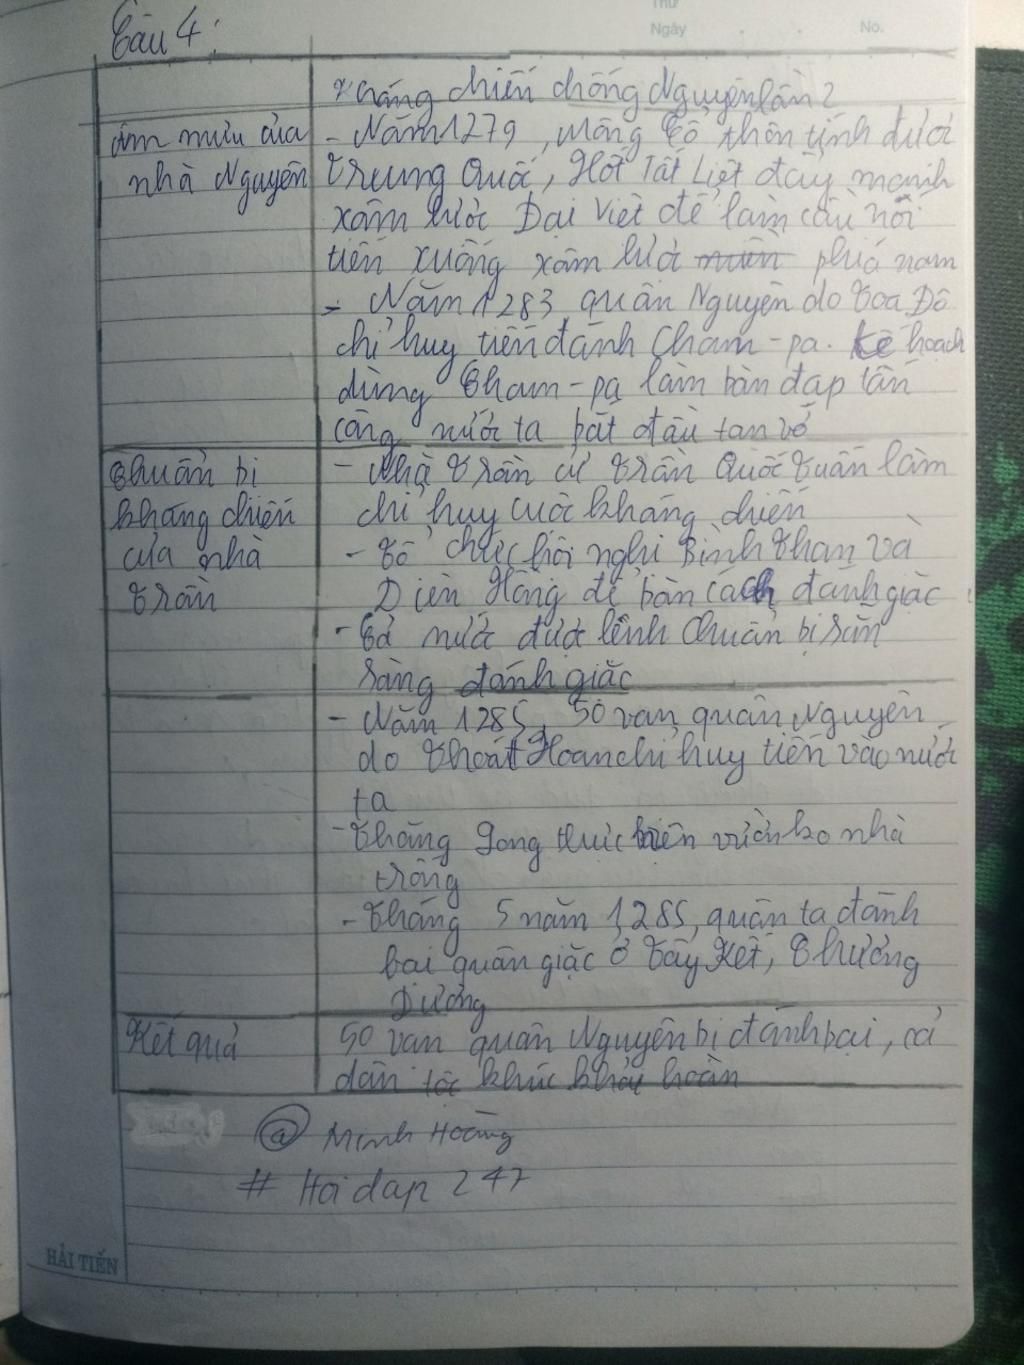 Thứ
Ngày
No.
Câu 4:
Kháng chiến chống Nguyên lần 2
Âm mưu của
nhà Nguyên
- Năm 1279, Mông Cổ thôn tính được
Trung Quốc, Hốt Tất Liệt đẩy mạnh
xâm lược Đại Việt để làm cầu nối
tiến xuống xâm lược miền phía nam
- Năm 1283 quân Nguyên do Toa Đô
chỉ huy tiến đánh Cham-pa. Kế hoạch
dùng Cham-pa làm bàn đạp tấn
công nước ta bắt đầu tan vỡ
Chuẩn bị
kháng chiến
của nhà
Trần
- Nhà Trần cử Trần Quốc Tuấn làm
chỉ huy cuộc kháng chiến
- Tổ chức hội nghị Bình Than và
Diên Hồng để bàn cách đánh giặc
- Cả nước được lệnh chuẩn bị sẵn
sàng đánh giặc
- Năm 1285, 50 vạn quân Nguyên
do Thoát Hoan chỉ huy tiến vào nước
ta
- Thăng Long thực hiện vườn ko nhà
trống
- Tháng 5 năm 1285, quân ta đánh
bại quân giặc ở Tây Kết, Chương
Dương
Kết quả
50 vạn quân Nguyên bị đánh bại, cả
dân tộc khúc khải hoàn
@ Minh Hoàng
# Hoidap 247
HẢI TIẾN